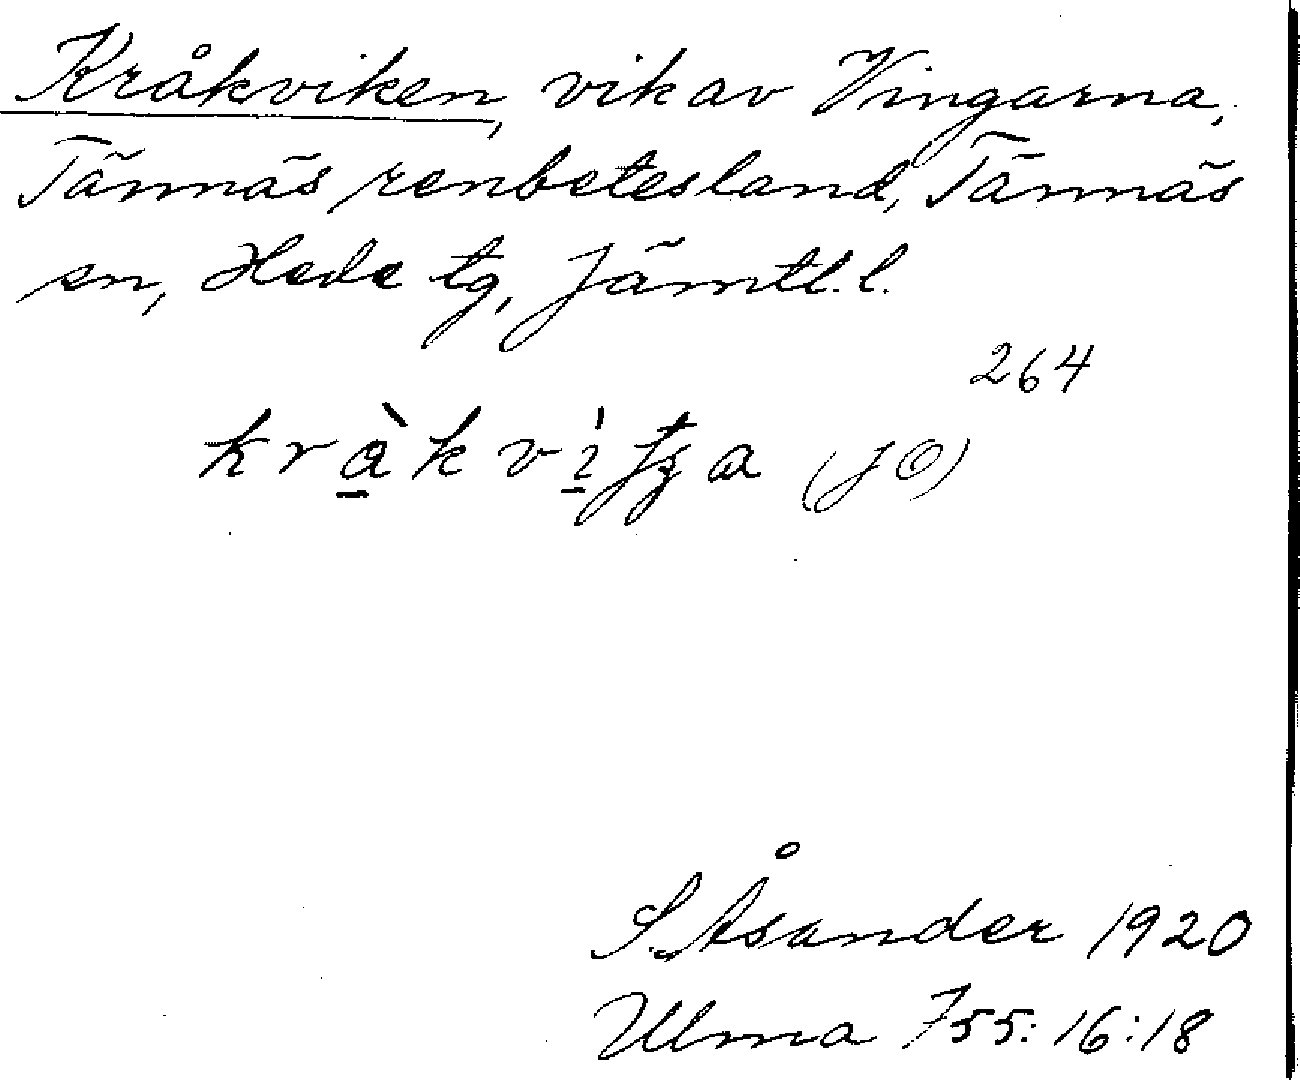 Kråkviken, vik av Vingarna,
Tännäs renbetesland, Tännäs
sn, Hede tg, Jämtl. l.
264
(JO)
S. Åsander 1920
Ulma 755:16:18